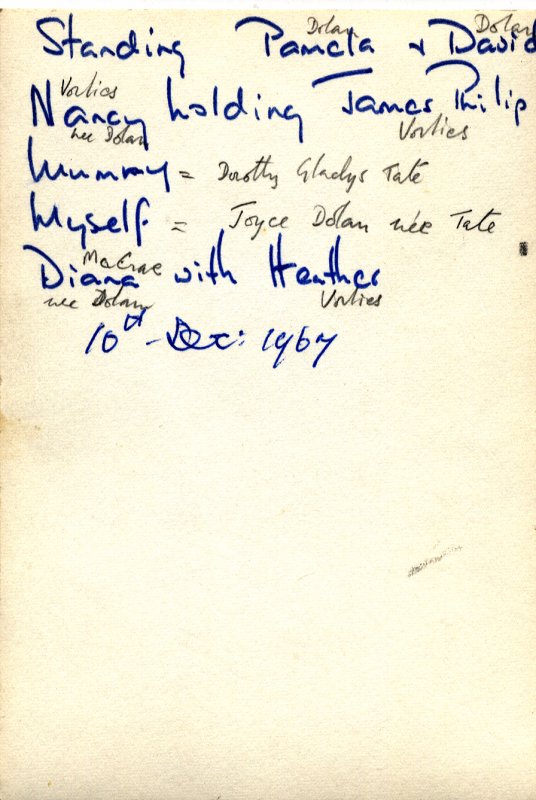 Dolan Dolan
Standing Pamela + David
Vorlies
Nancy holding James Philip
nee Dolan Vorlies
Mummy = Dorothy Gladys Tate
Myself = Joyce Dolan née Tate
MacCrae
Diana with Heather
nee Dolan Vorlies
10th Dec: 1967